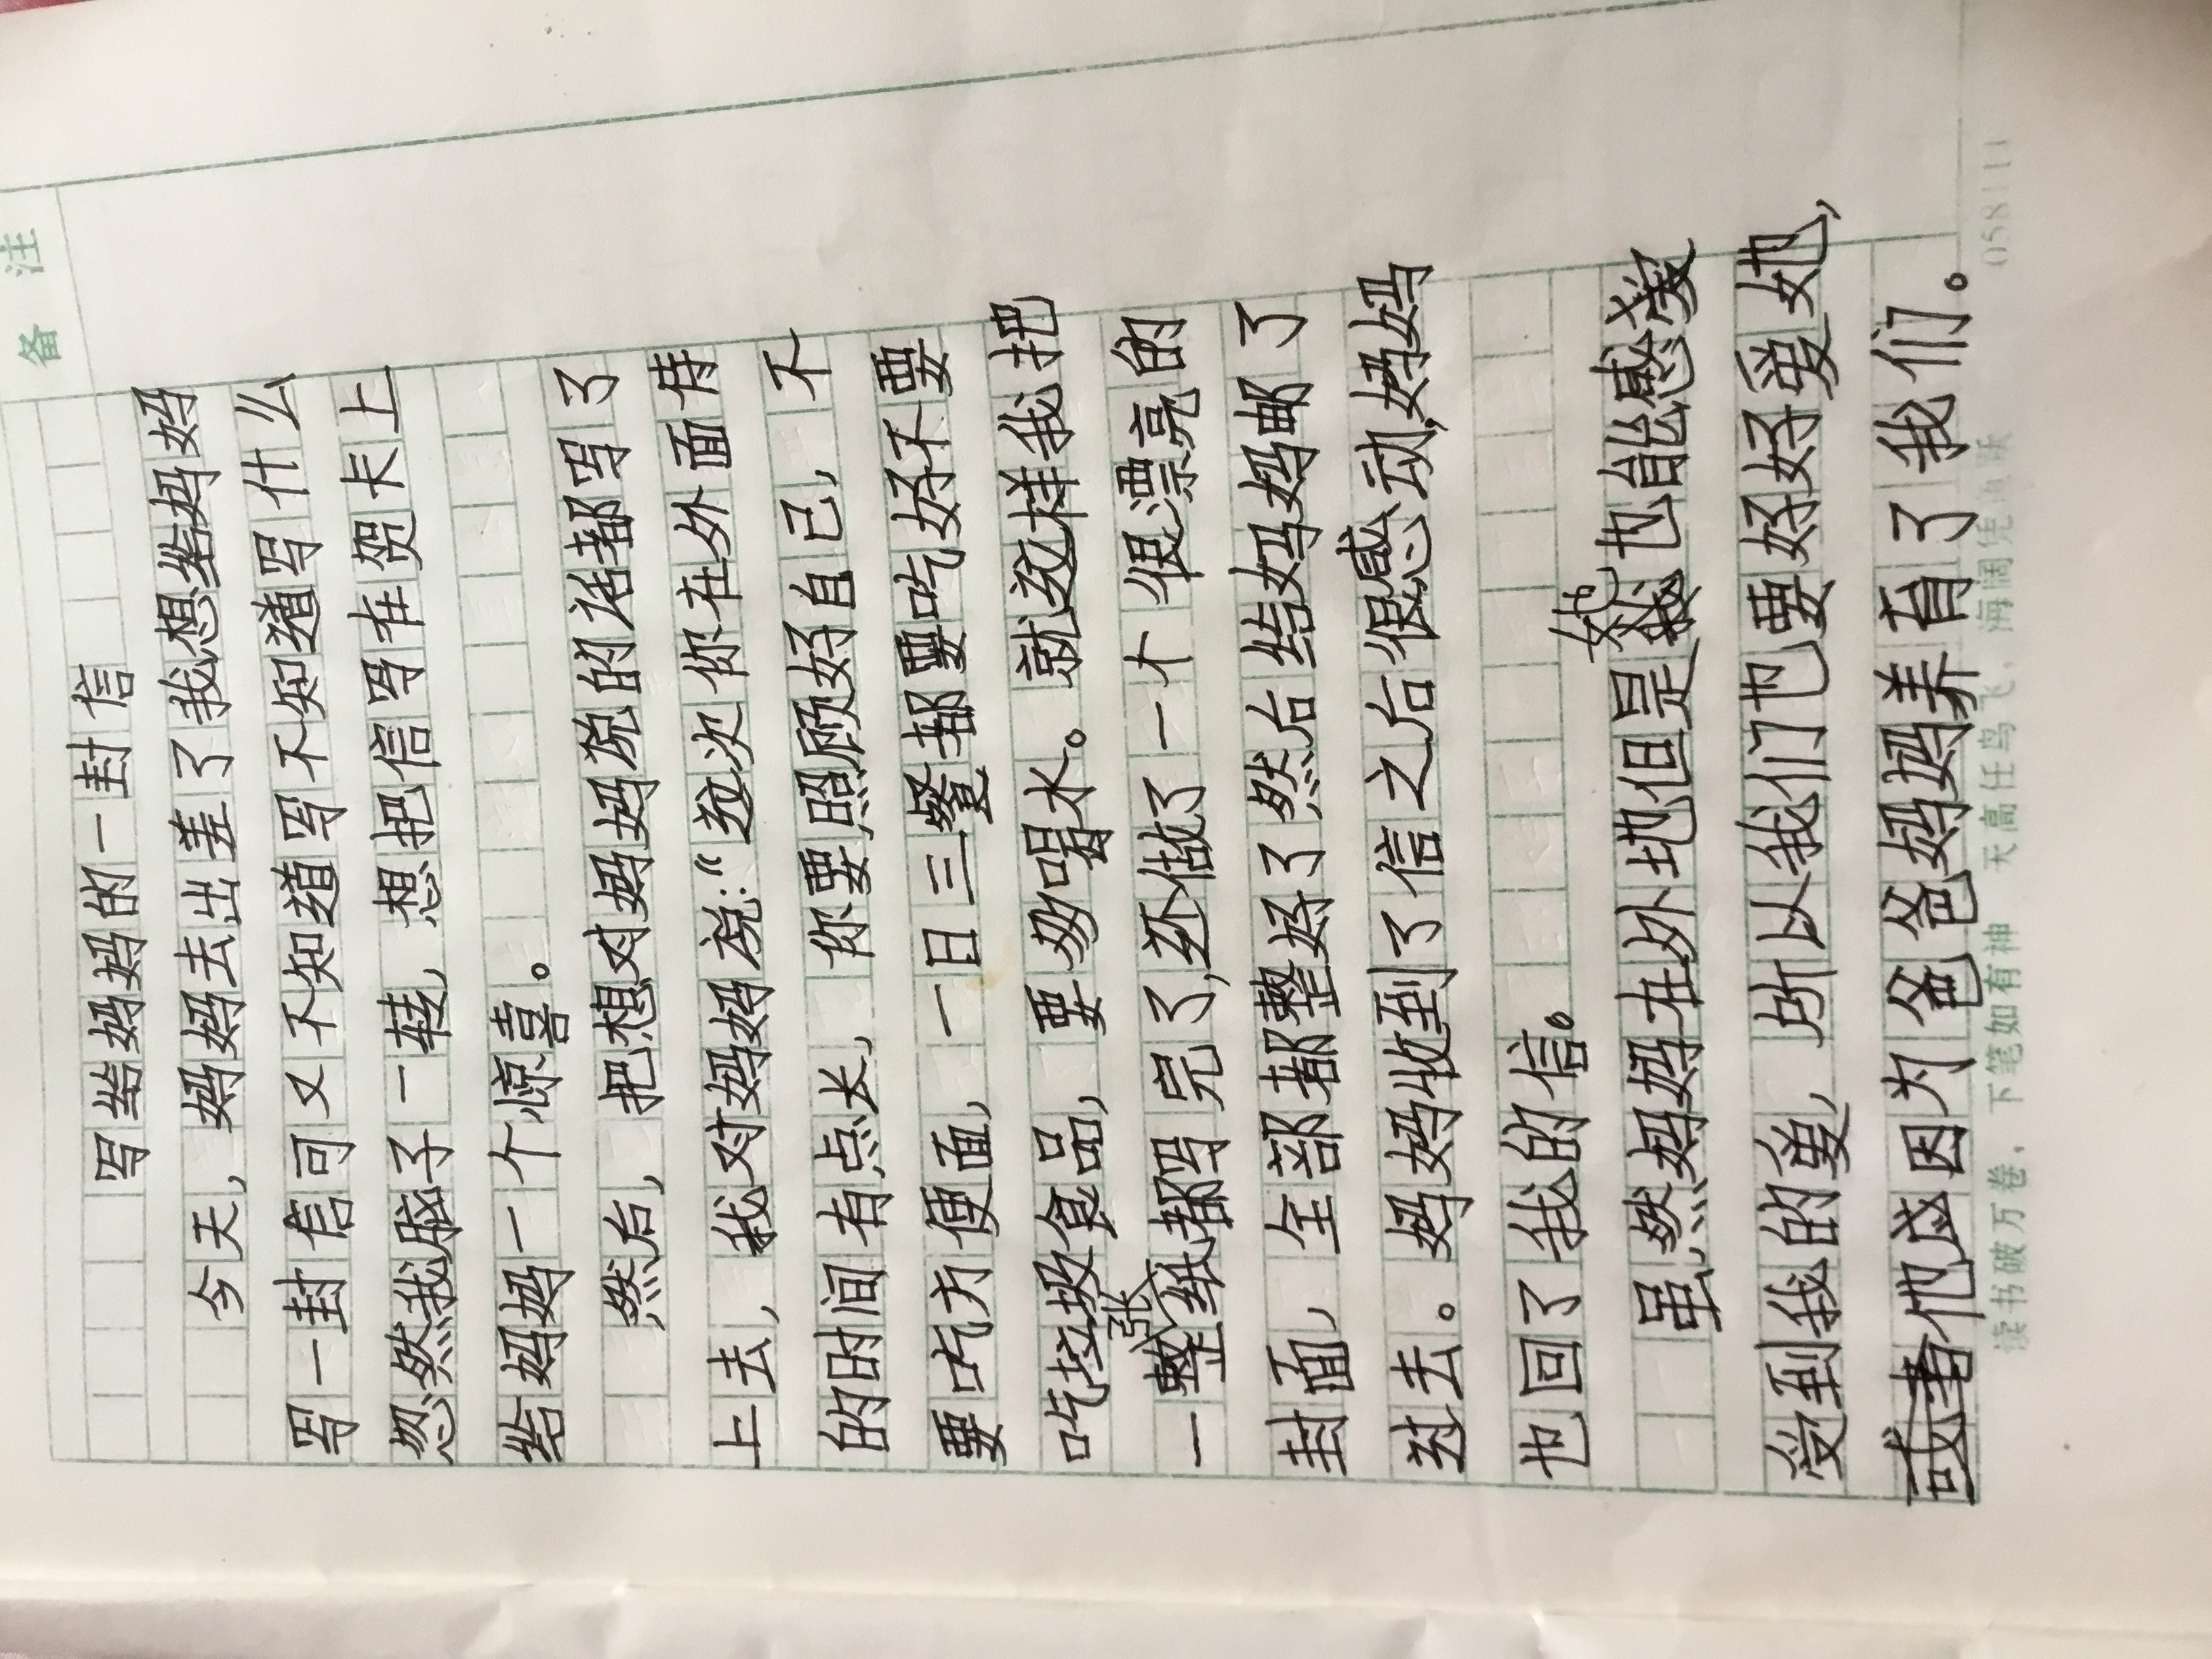 备 注
写给妈妈的一封信
今天，妈妈去出差了我想给妈妈
写一封信可又不知道写不知道写什么
忽然我脑子一转，想把信写在贺卡上
给妈妈一个惊喜。
然后，把想对妈妈说的话都写了
上去，我对妈妈说：“这次你在外面待
的时间有点长，你要照顾好自己，不
要吃方便面，一日三餐都要吃好不要
吃垃圾食品，要多喝水。就这样我把
一整张纸都写完了，还做了一个很漂亮的
封面，全部都整好了然后给妈妈邮了
过去。妈妈收到了信之后很感动，妈妈
也回了我的信。
虽然妈妈在外地但是她也能感
受到我的爱，所以我们也要好好爱她，
或者他因为爸爸妈妈养育了我们。
读书破万卷，下笔如有神 天高任鸟飞，海阔凭鱼跃 058111